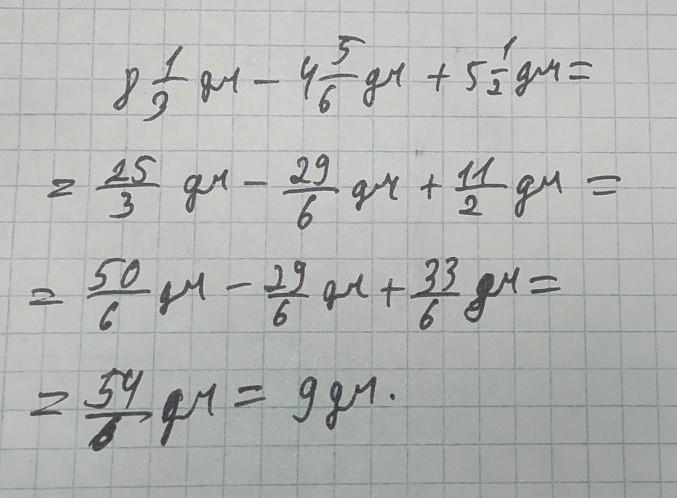 8 1/3 дм − 4 5/6 дм + 5 1/2 дм =
= 25/3 дм − 29/6 дм + 11/2 дм =
= 50/6 дм − 29/6 дм + 33/6 дм =
= 54/6 дм = 9 дм.